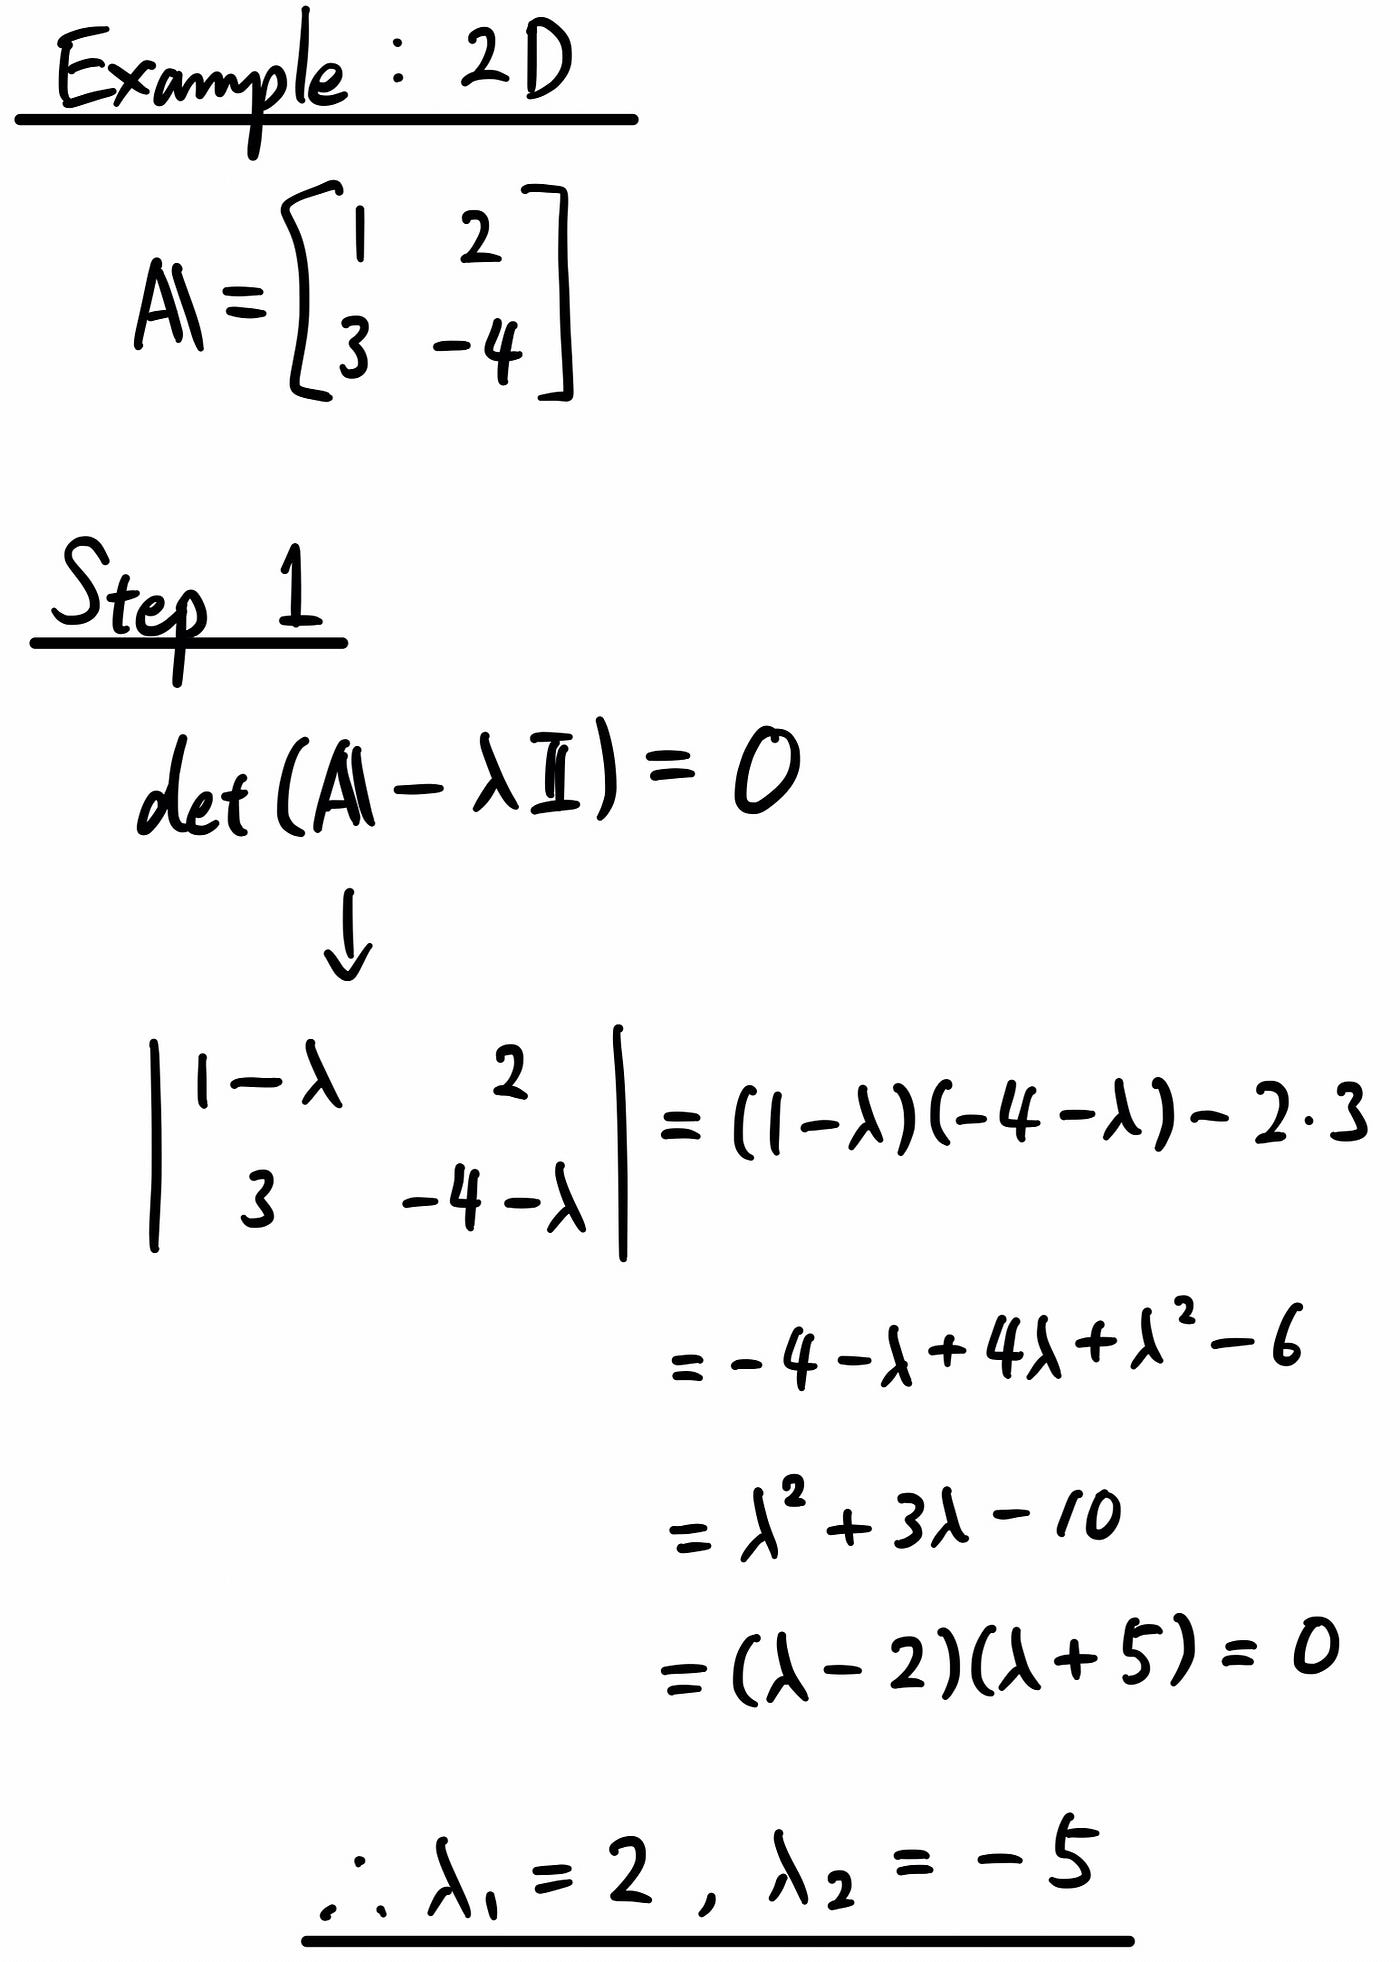 Example : 2D
A = [ 1 2
3 -4 ]
Step 1
det (A - λI) = 0
↓
| 1-λ 2
3 -4-λ | = (1-λ)(-4-λ) - 2·3
= -4-λ+4λ+λ²-6
= λ²+3λ-10
= (λ-2)(λ+5) = 0
∴ λ₁ = 2 , λ₂ = -5